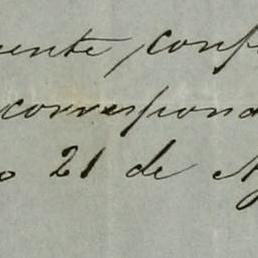 uente, conf
correspond
o 21 de Ag